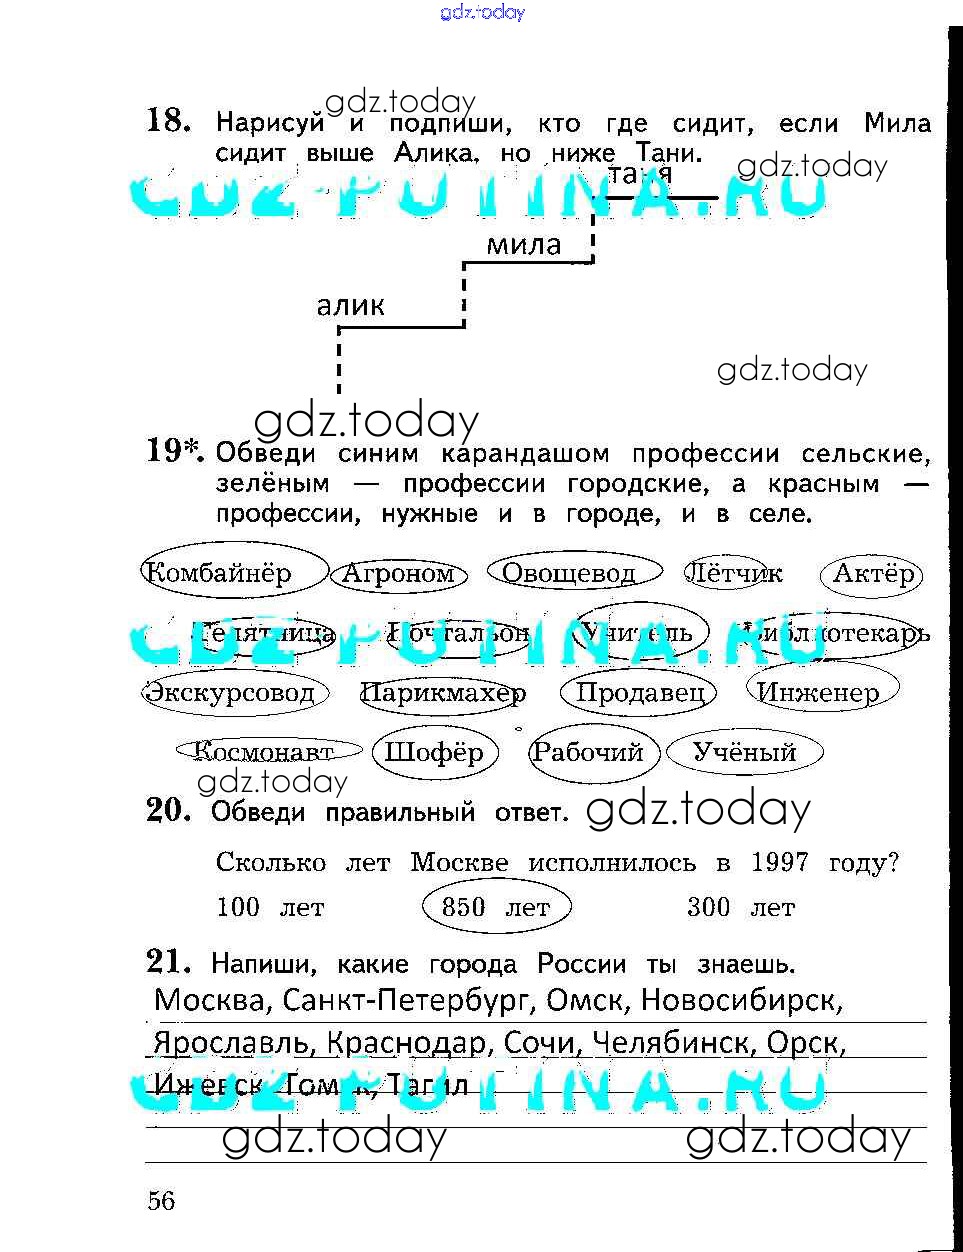 gdz.today
gdz.today
18. Нарисуй и подпиши, кто где сидит, если Мила
сидит выше Алика, но ниже Тани.
gdz.today
таня
GDZ-PUTINA.RU
мила
алик
gdz.today
gdz.today
19*. Обведи синим карандашом профессии сельские,
зелёным — профессии городские, а красным —
профессии, нужные и в городе, и в селе.
Комбайнёр Агроном Овощевод Лётчик Актёр
Телятница Почтальон Учитель Библиотекарь
GDZ-PUTINA.RU
Экскурсовод Парикмахер Продавец Инженер
Космонавт Шофёр Рабочий Учёный
gdz.today
20. Обведи правильный ответ.
gdz.today
Сколько лет Москве исполнилось в 1997 году?
100 лет 850 лет 300 лет
21. Напиши, какие города России ты знаешь.
Москва, Санкт-Петербург, Омск, Новосибирск,
Ярославль, Краснодар, Сочи, Челябинск, Орск,
Ижевск, Томск, Тагил
GDZ-PUTINA.RU
gdz.today gdz.today
56